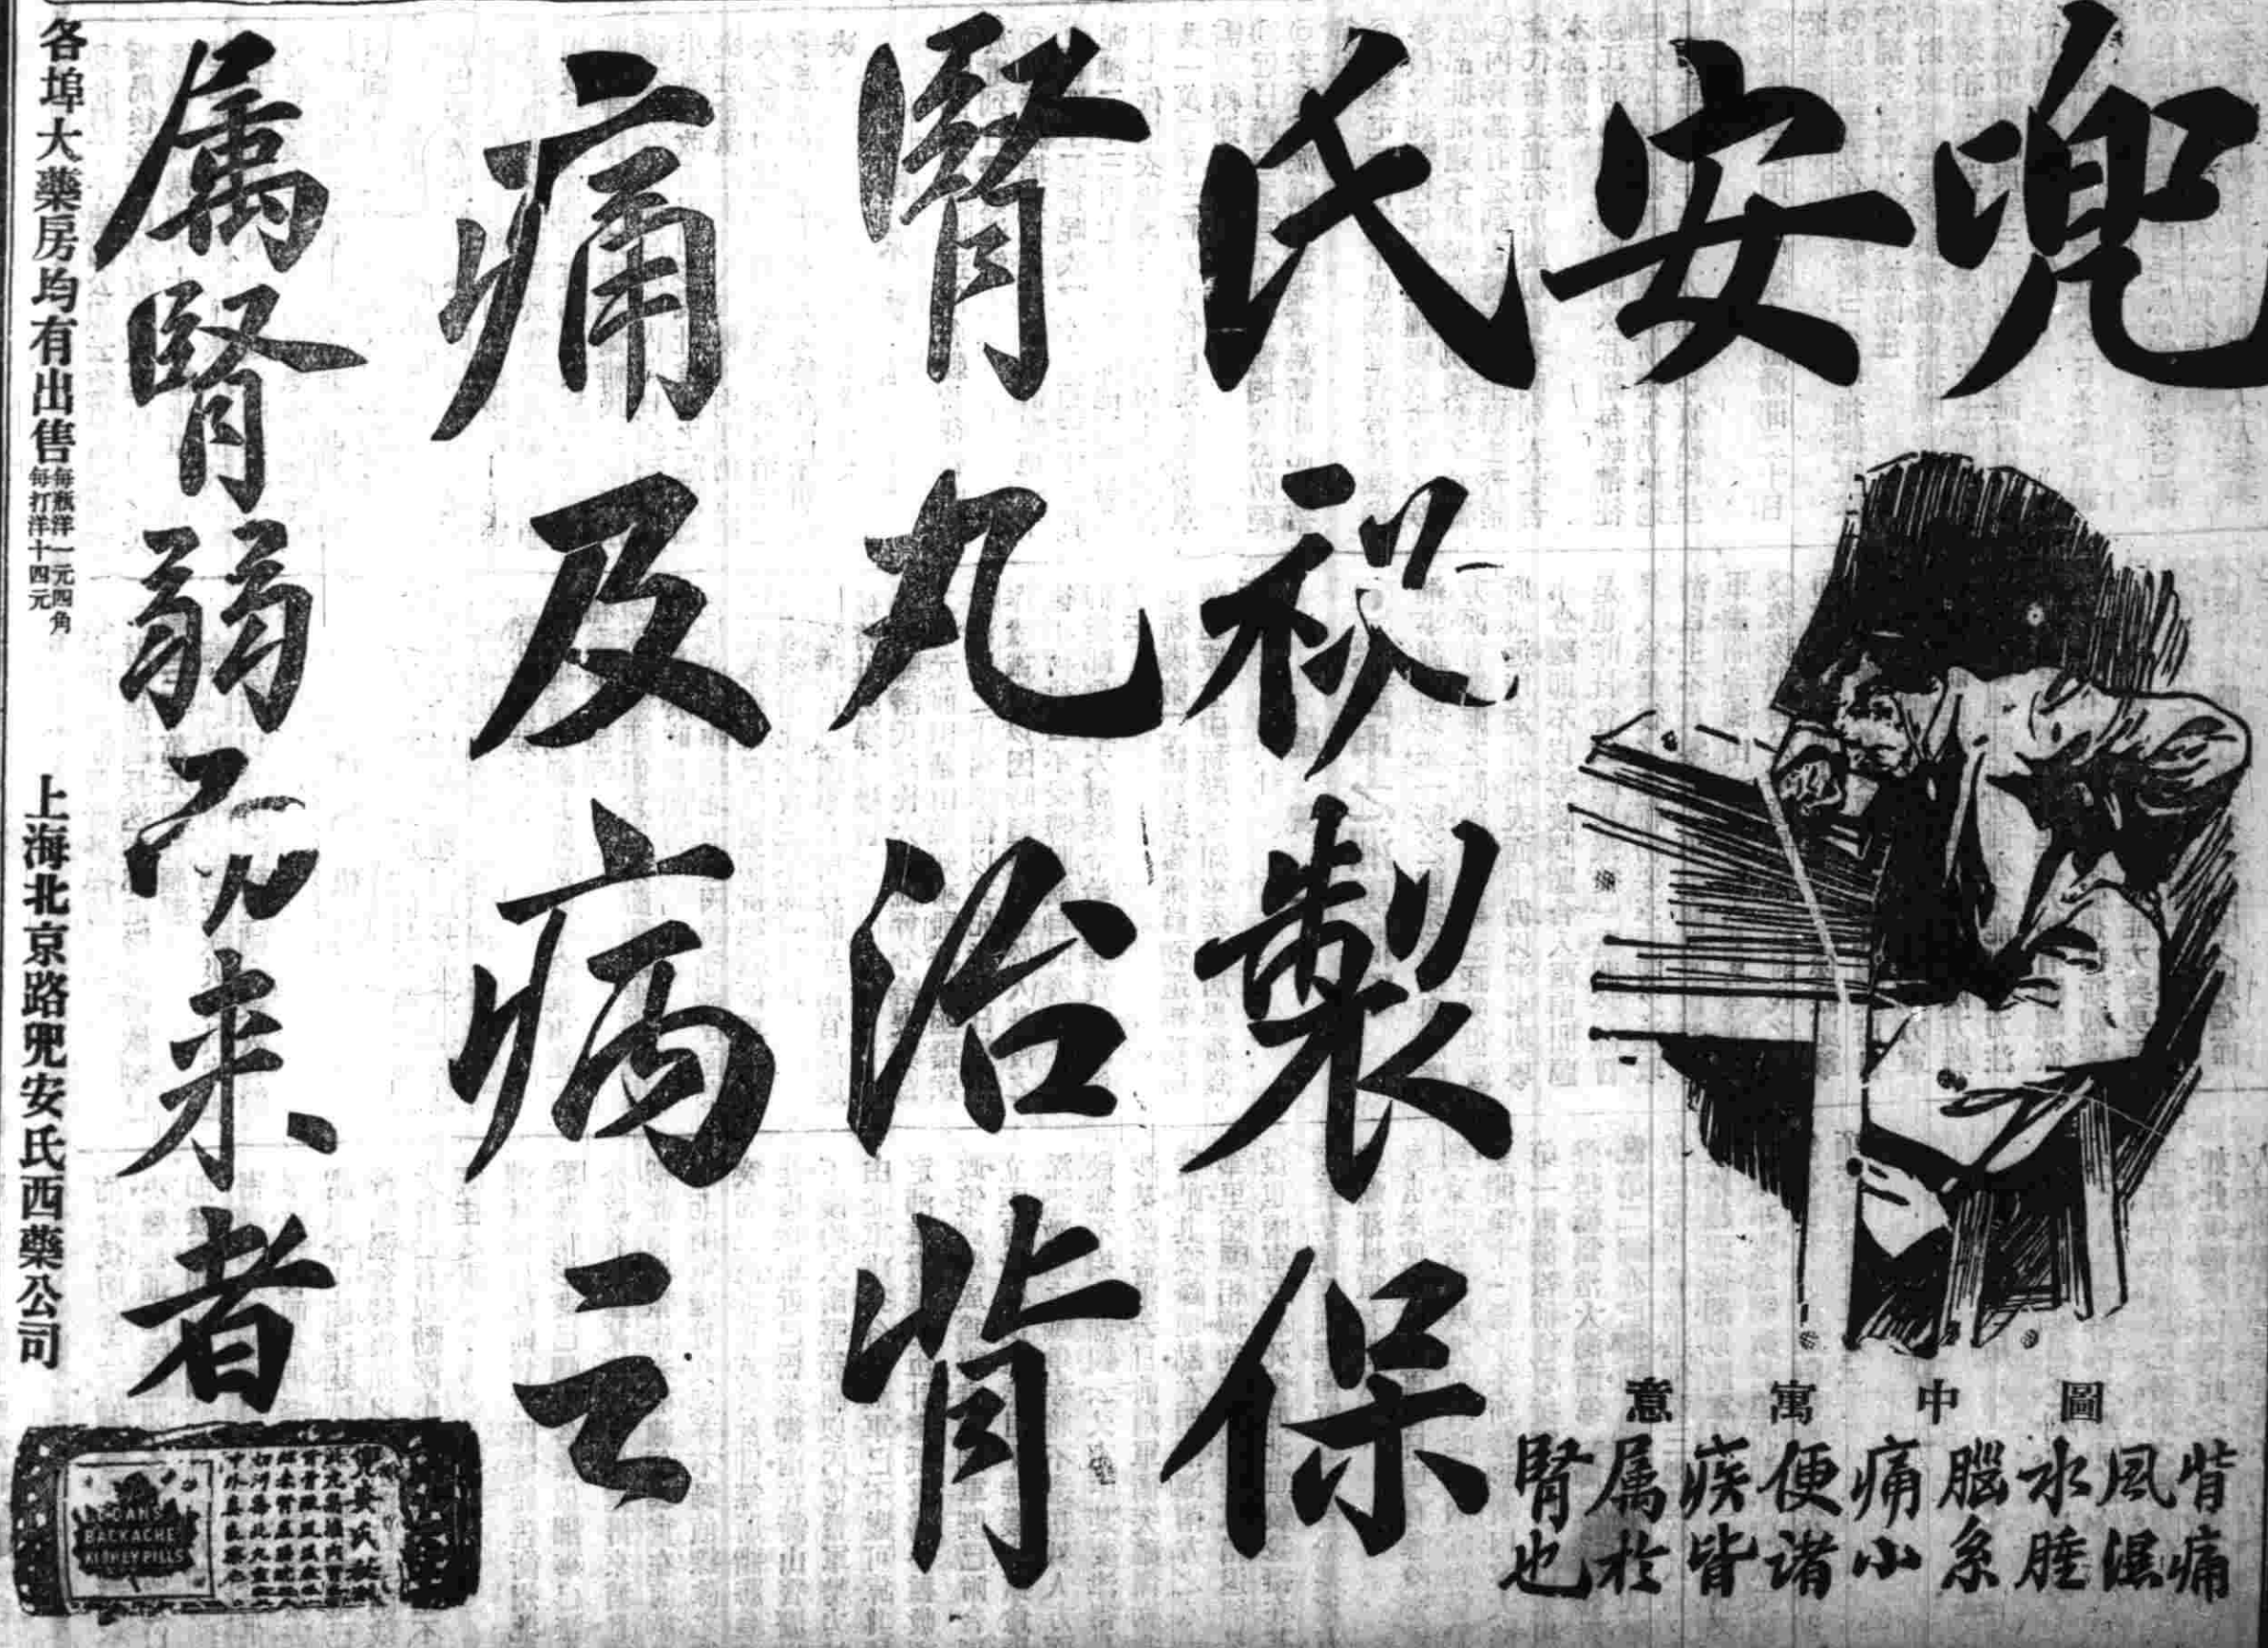 兜安氏
祕製保
腎丸治背
痛及病之
属腎弱而来者
圖中寓意
背痛
風濕
水腫
腦系
痛小
便諸
疾皆
属於
腎也
各埠大藥房均有出售
每瓶洋一元四角
每打洋十四元
上海北京路兜安氏西藥公司
DOAN'S
BACKACHE
KIDNEY PILLS